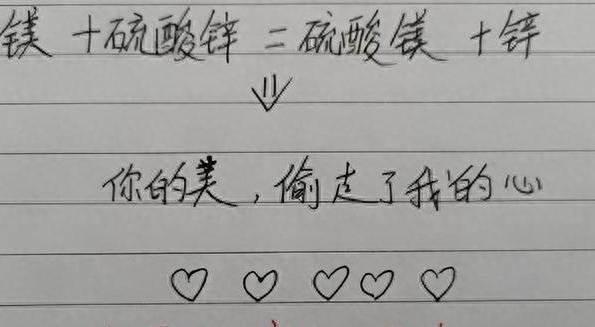 镁 + 硫酸锌 = 硫酸镁 + 锌
你的美,偷走了我的心